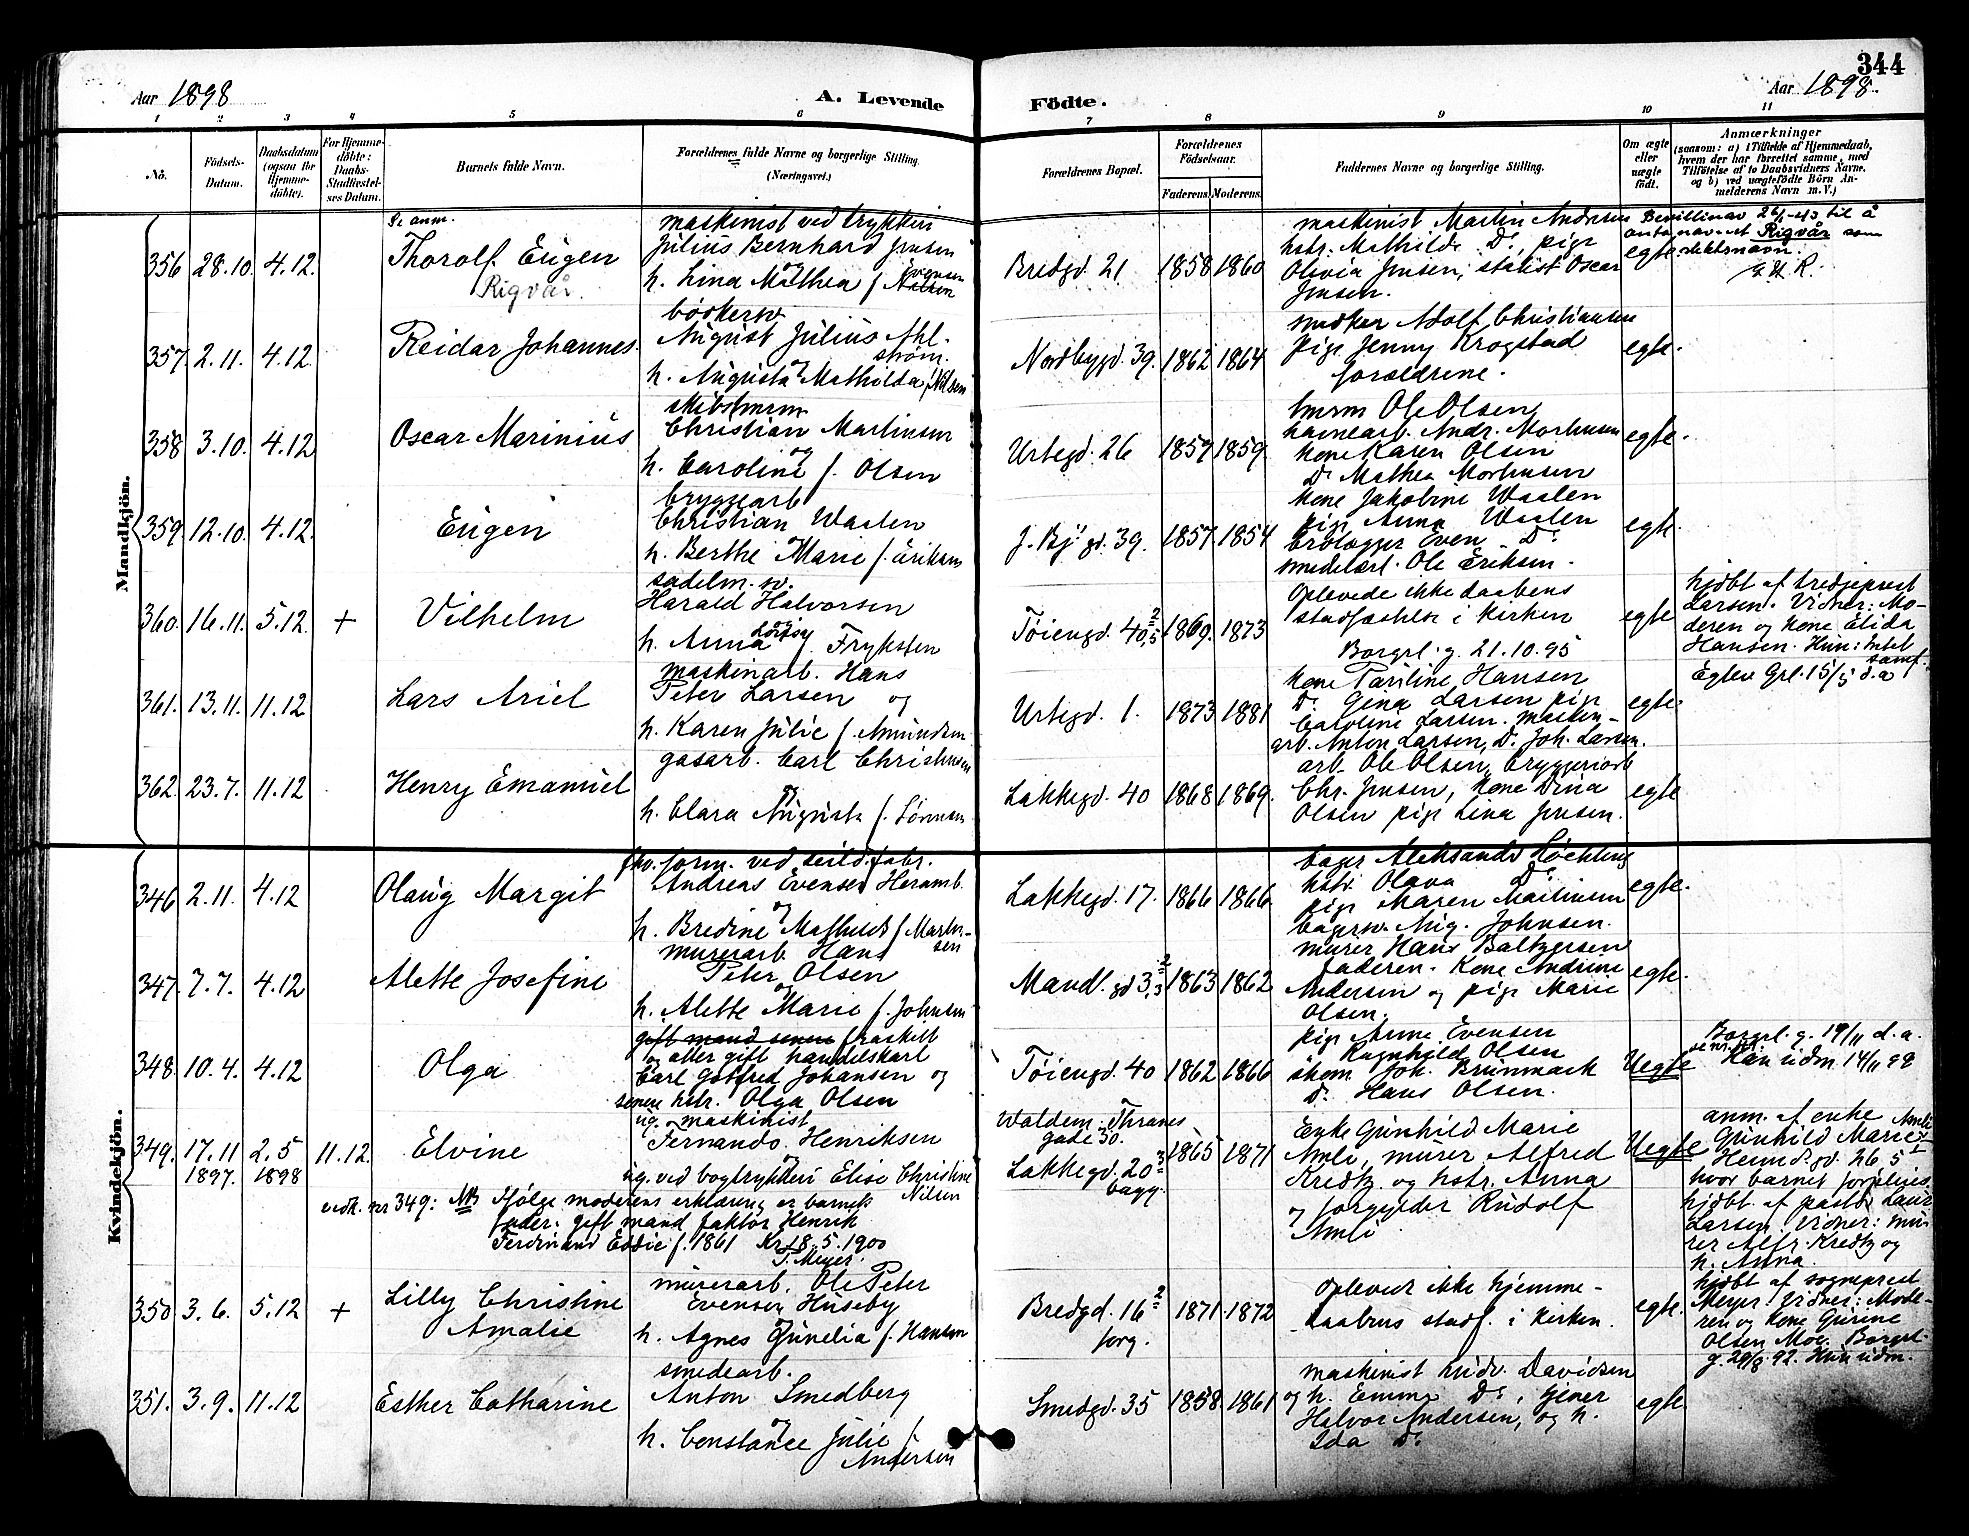 344
Aar 1898
A. Levende
Födte.
Aar 1898.
1 2 3 4 5 6 7 8 9 10 11
No.
Födsels-
Datum.
Daabsdatum
(ogsaa for
Hjemme-
döbte).
For Hjemme-
döbte:
Daabs-
Stadfæstel-
ses Datum.
Barnets fulde Navn.
Forældrenes fulde Navne og borgerlige Stilling.
(Næringsvei.)
Forældrenes Bopæl.
Forældrenes
Födselsaar.
Faderens. Moderens.
Faddernes Navne og borgerlige Stilling.
Om ægte
eller
uægte
født.
Anmærkninger
(saasom: a) i Tilfælde af Hjemmedaab,
hvem der har forrettet samme, med
Tilföielse af to Daabsvidners Navne,
og b) ved uægtefödte Börn An-
melderens Navn m. V.)
Mandkjön.
356 28.10. 4.12.
Se anm.
Thorolf Eugen
Rigvår.
maskinist ved trykkeri
Julius Bernhard Jensen
og
h. Lina Mathea f.
Bredgd. 21 1858 1860
maskinist Martin Andersen
hstr. Mathilde Do, pige
Olivia Jensen, Oscar
Jensen.
egte.
Bevilling av 26/1-43 til å
anta navnet Rigvår som
slektsnavn.
357 2.11. 4.12.
Reidar Johannes.
bødkersv.
August Julius Ahl-
ström.
og
h. Augusta Mathilda f. Nilsen
Nordbygd. 39. 1862 1864
snedker Adolf Christiansen
pige Jenny Krogstad
forældrene.
egte.
358 3.10. 4.12
Oscar Marinius
skibstmrm
Christian Martinsen
og
h. Caroline f. Olsen
Urtegd. 26 1857 1859.
tmrm Ole Olsen,
havnearb. Andr. Mortensen
kone Karen Olsen
Do Mathea Mortensen
egte.
359 12.10. 4.12.
Eugen
bryggearb
Christian Waalen
h. Berthe Marie f. Eriksen
J. Bj. gd. 39. 1857. 1854
kone Jakobine Waalen
pige Anna Waalen
brolægger Even Do
smedelærl. Ole Eriksen.
egte.
360. 16.11. 5.12. +
Vilhelm
sadelm. sv.
Harald Halvorsen
og
h. Anna f. Fryksten
Töiengd. 40 1869. 1873
Oplevede ikke daabens
stadfæstelse i kirken
Borgerl. g. 21.10.95
egte
hjdbt af tredjeprest
Larsen. Vidner: Mo-
deren og kone Elida
Hansen. Hun: Intet
samf.
361. 13.11. 11.12
Lars Ariel
maskinarb. Hans
Peter Larsen og
h. Karen Julie f. Amundsen
Urtegd. 1. 1873 1881
kone Pauline Hansen
Do. Gina Larsen pige
Caroline Larsen. maskin-
arb. Anton Larsen, Do. Joh. Larsen.
egte.
362. 23.7. 11.12
Henry Emanuel
gasarb. Carl Christensen
og
h. Clara Augusta f. Sörensen
Lakkegd. 40 1868 1869.
arb. Ole Olsen, bryggeriarb
Chr. Jensen, kone Dina
Olsen pige Lina Jensen.
egte
Kvindekjön.
346 2.11. 4.12
Olaug Margit
fhv. form. ved seild. fabr.
Andreas Evensen Heramb.
og
h. Bredine Mathilde f. Martin-
sen
Lakkegd. 17. 1866 1866
bager Aleksander
hstr. Olava Do
pige Maren Martinsen
bagersv. Aug. Johnsen.
egte.
347. 7.7. 4.12
Alette Josefine
murerarb. Hans
Peter Olsen
og
h. Alette Marie f. Johnsen
Maridl. gd 3 1863 1862
murer Hans Baltzersen
faderen. Kone Andrine
Andersen og pige Marie
Olsen.
egte.
348. 10.4. 4.12
Olga
gift mand senere fraskilt
og atter gift handelskarl
Carl Gotfred Johansen og
senere hstr. Olga Olsen
Töiengd. 40 1862 1866
pige Anne Evensen
Ragnhild Olsen
skom. Joh. Brunmark
Do. Hans Olsen.
Uegte
Borgerl. g. 19/11 d. a.
Han udm. 14/11 98
349. 17.11 1897. 2.5 1898 11.12.
Elvine
ug. maskinist
Fernando Henriksen
og
ug. ved bogtrykkeri Elise Christine
Nilsen
Waldem. Thranes
gade 30.
Lakkegd. 20
bagg.
1865 1871
Enke Gunhild Marie
Amli, murer Alfred
Kredtz og hstr. Anna
og forgylder Rudolf
Amli
Uegte
anm. af enke
Gunhild Marie Amli
hvor barnet forpleies.
hjdbt af pastor Laur.
Larsen. Vidner: mu-
rer Alfr. Kredtz og
h. Anna.
vedk. nr 349: NB Ifølge moderens erklæring er barnets
fader: gift mand faktor Henrik
Ferdinand f. 1861 Kr. 18.5.1900
T. Meyer.
350 3.6. 5.12 +
Lilly Christine
Amalie
murerarb. Ole Peter
Evensen Huseby
og
h. Agnes Gunelia f. Hansen
Bredgd. 16
forg.
1871 1872
oplevede ikke hjemme-
daabens stadf. i kirken.
egte.
hjdbt af sogneprest
Meyer. Vidner: Mode-
ren og kone Gurine
Olsen Moe. Borgerl.
g. 29/8 92. Hun udm.
351. 3.9. 11.12
Esther Catharine
smedearb.
Anton Smedberg
og
h. Constance Julie f.
Andersen
Smedgd. 35 1858. 1861
maskinist Ludv. Davidsen
og h. Emma Do, tjener
Halvor Andersen, og h.
Ida Do
egte.